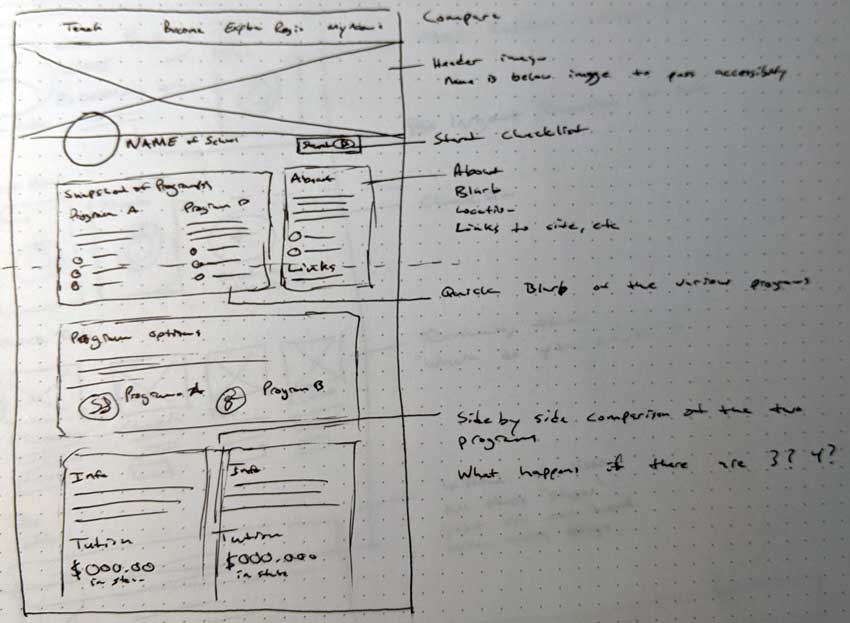 Compare
Teach Become Explore Regio My Account
Header image
Name is below image to pass accessibility
NAME of School
Start
Start Checklist
Snapshot of Programs
Program A
About
About
Blurb
Location
Links to side, etc
Links
Quick Blurb of the various programs
Program options
Program A Program B
Side by side comparison of the two
programs
What happens if there are 3? 4?
Info Info
Tution Tution
$000.00 $000.000
in state in state